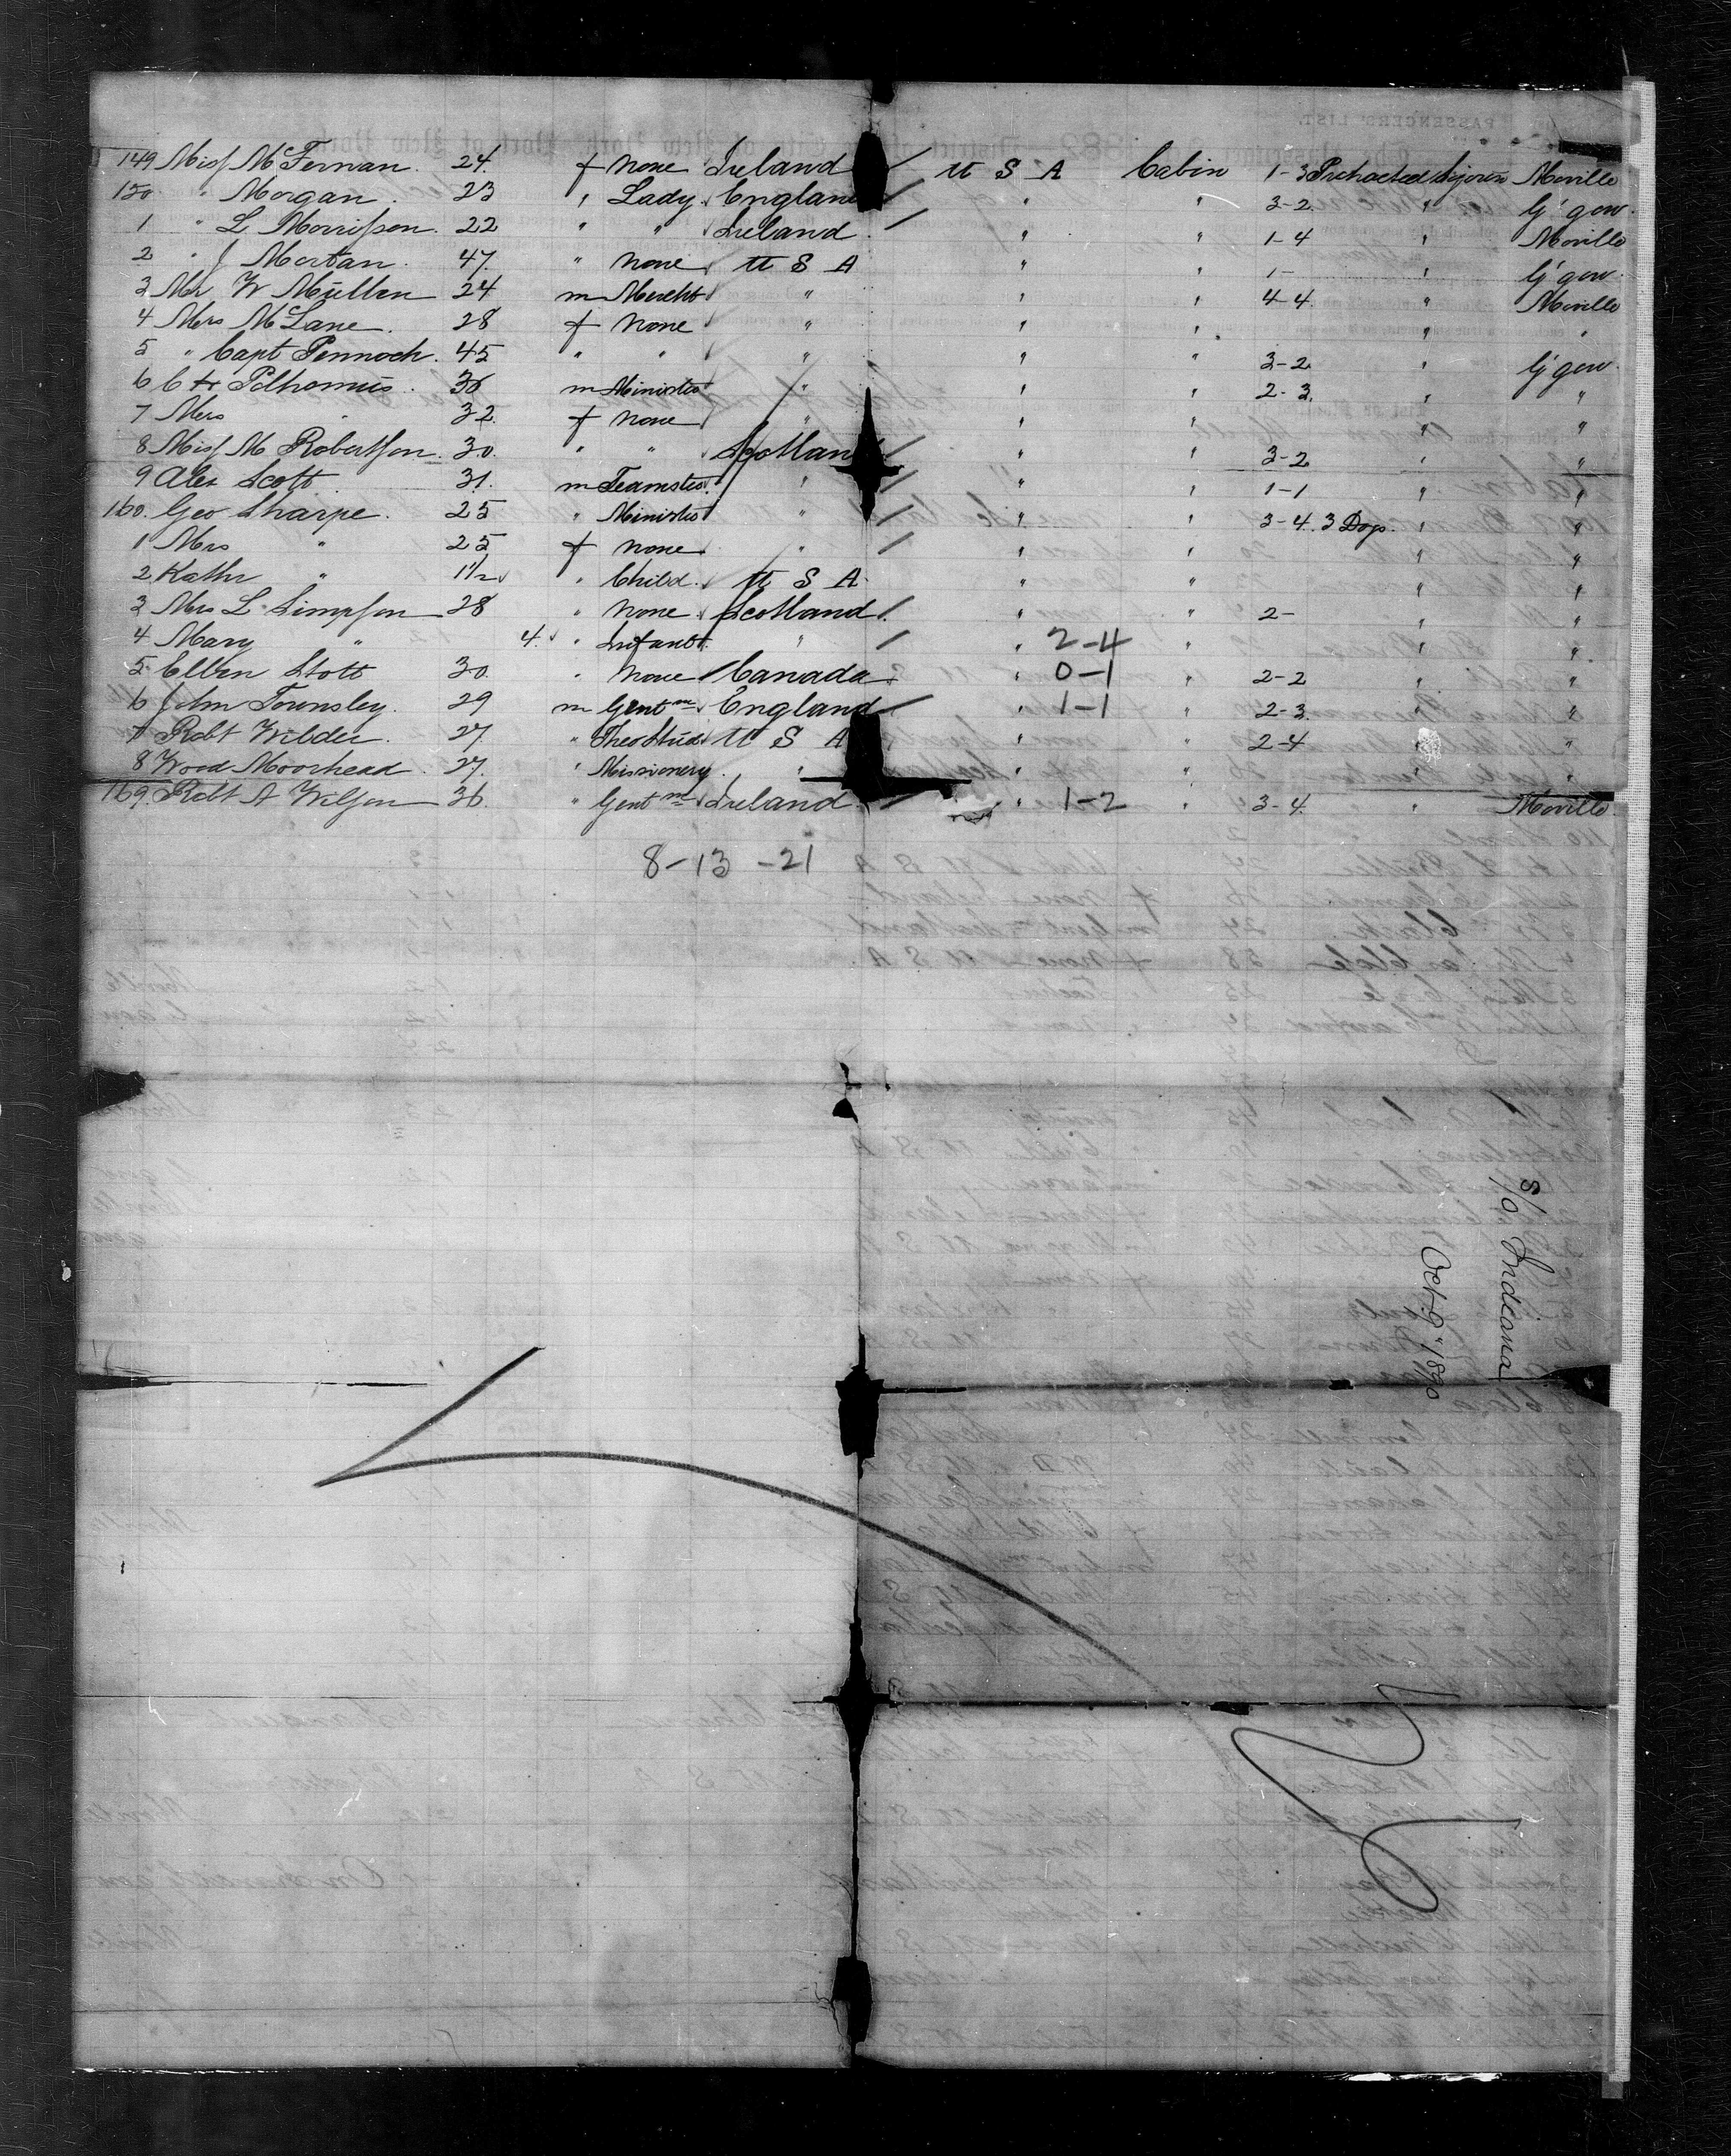 149 Miss McTernan. 24. f none Ireland U S A Cabin 1-3 Protracted Sojourn Moville
150 " Morgan. 23 " Lady England " " 3-2 " G'gow.
1 " L Morrisson. 22 " " Ireland. " " 1-4 " Moville
2 " J Mortan. 47. " none U S A " " 1- " G'gow.
3 Mr W Mullen 24 m Mercht " " " 4-4. " Moville
4 Mrs McLane. 28 f none " " " " "
5 " Capt Pennock. 45 " " " " " 3-2 " G'gow.
6 C H Polhemus. 36 m Minister " " " 2-3. " "
7 Mrs " 32. f none " " " " "
8 Miss M Robertson. 30. " " Scotland " " 3-2 " "
9 Alex Scott. 31. m Teamster " " " 1-1 " "
160. Geo Sharpe. 25 " Minister " " " 3-4. 3 Dogs. " "
1 Mrs " 25 f none " " " " "
2 Kathr " 1 1/2 " Child. U S A " " " "
3 Mrs L Simpson 28 " none Scotland. " " 2- " "
4 Mary " 4. " Infant " " 2-4 " " "
5 Ellen Stott 30. " none Canada " 0-1 " 2-2 " "
6 John Townsley. 29 m Gentm England " 1-1 " 2-3. " "
7 Robt Wilder. 27 " Theo Stud U S A " " 2-4 " "
8 Wood Moorhead. 27. " Missionery. " " " " "
169. Robt A Wilson 36. " Gentm Ireland. " 1-2 " 3-4. " Moville.
8-13-21
S/S Indiana
Oct 9" 1890